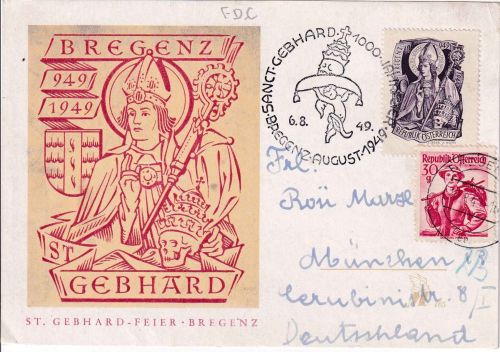 FDC
BREGENZ
949
1949
ST
GEBHARD
ST. GEBHARD-FEIER · BREGENZ
SANCT·GEBHARD·
BREGENZ·AUGUST·1949
6.8.
49.
REPUBLIK ÖSTERREICH
Republik Österreich
30
g
Frl.
München
Cerubinistr. 8/I
Deutschland